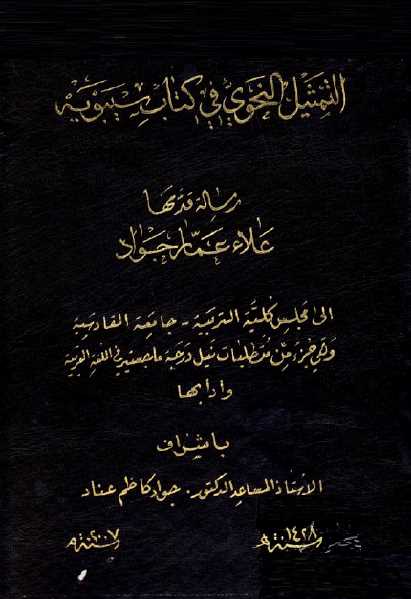 التمثيل النحوي في كتاب سيبويه
رسالة قدمها
علاء عمار جواد
الى مجلس كلية التربية - جامعة القادسية
وهي جزء من متطلبات نيل درجة ماجستير في اللغة العربية
وادابها
باشراف
الأستاذ المساعد الدكتور. جواد كاظم عناد
سنة ١٤٢٨ هـ سنة ٢٠٠٧ م